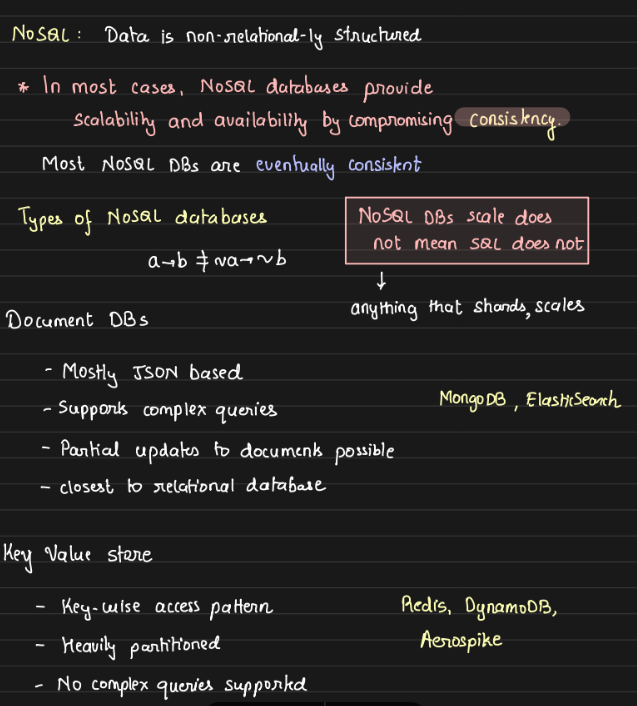 NoSQL: Data is non-relational-ly structured
* In most cases, NoSQL databases provide
scalability and availability by compromising consistency.
Most NoSQL DBs are eventually consistent
Types of NoSQL databases
NoSQL DBs scale does
not mean SQL does not
a→b ≠ ~a→~b
↓
anything that shards, scales
Document DBs
- Mostly JSON based
- Supports complex queries
MongoDB, ElasticSearch
- Partial updates to documents possible
- closest to relational database
Key Value store
- Key-wise access pattern
Redis, DynamoDB,
- Heavily partitioned
Aerospike
- No complex queries supported